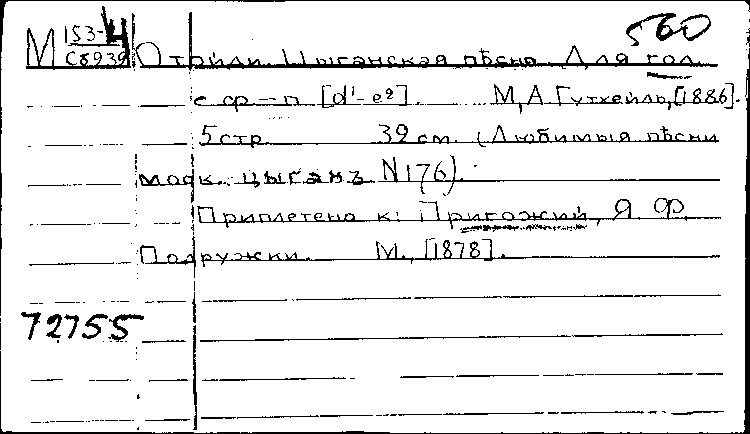 560
М 153-4
Сб939
Отойди. Цыганская пѣсня. Для гол.
с ф-п [d¹-e²]. М, А. Гутхейль, [1886].
5 стр. 32 см. (Любимыя пѣсни
моск. цыганъ N176).
Приплетено к: Пригожий, Я. Ф.
Подружки. М., [1878].
72755